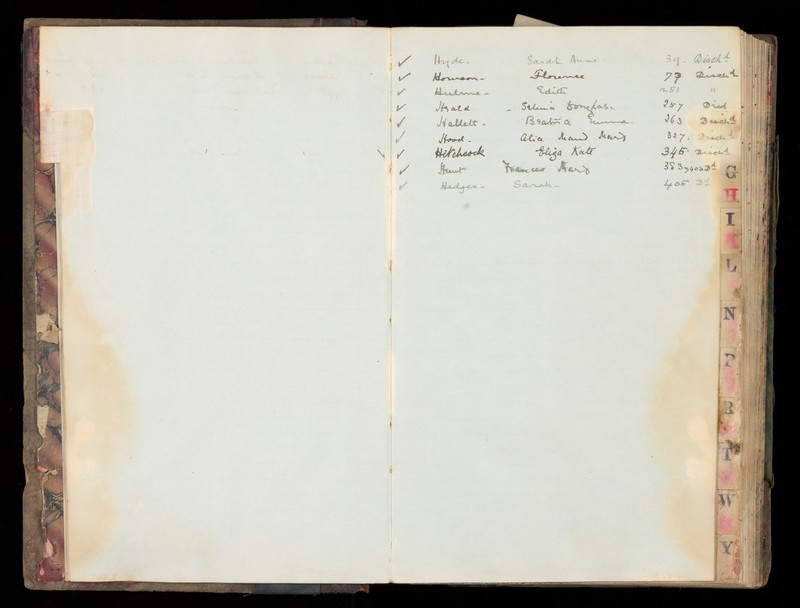 ✓ Hyde - Sarah Anne 39 - Disch^d
✓ Howson - Florence 79 Disch^d
✓ Hulme - Edith 251 "
✓ Heald - Selina Douglas - 257 Died
✓ Hallett - Emma 263 Disch^d
✓ Hood. Alice Maud Mary 327. Disch^d
✓ Hitchcock Eliza Kate 345. Disch^d
✓ Hunt Frances Mary 383 D^d
✓ Hedges - Sarah - 405 D^d
G
H
I
L
N
P
R
T
W
Y